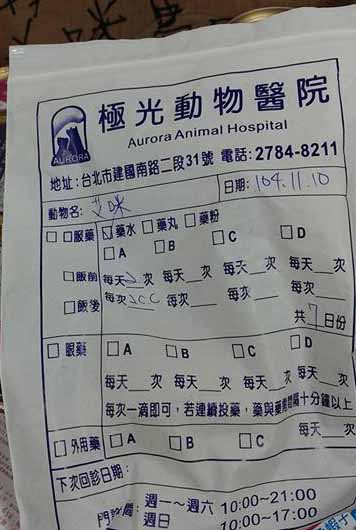 極光動物醫院
Aurora Animal Hospital
AURORA
地址:台北市建國南路二段31號 電話:2784-8211
動物名: 艾咪 日期: 104.11.10
口服藥 藥水 藥丸 藥粉
A B C D
飯前 每天2次 每天__次 每天__次 每天__次
飯後 每次2CC 每次__ 每次__ 每次__
共7日份
眼藥 A B C D
每天__次 每天__次 每天__次 每天__次
每次一滴即可,若連續投藥,藥與藥需間隔十分鐘以上
外用藥 A B C D
每天__次
下次回診日期:
門診時間:週一~週六 10:00~21:00
週日 10:00~17:00